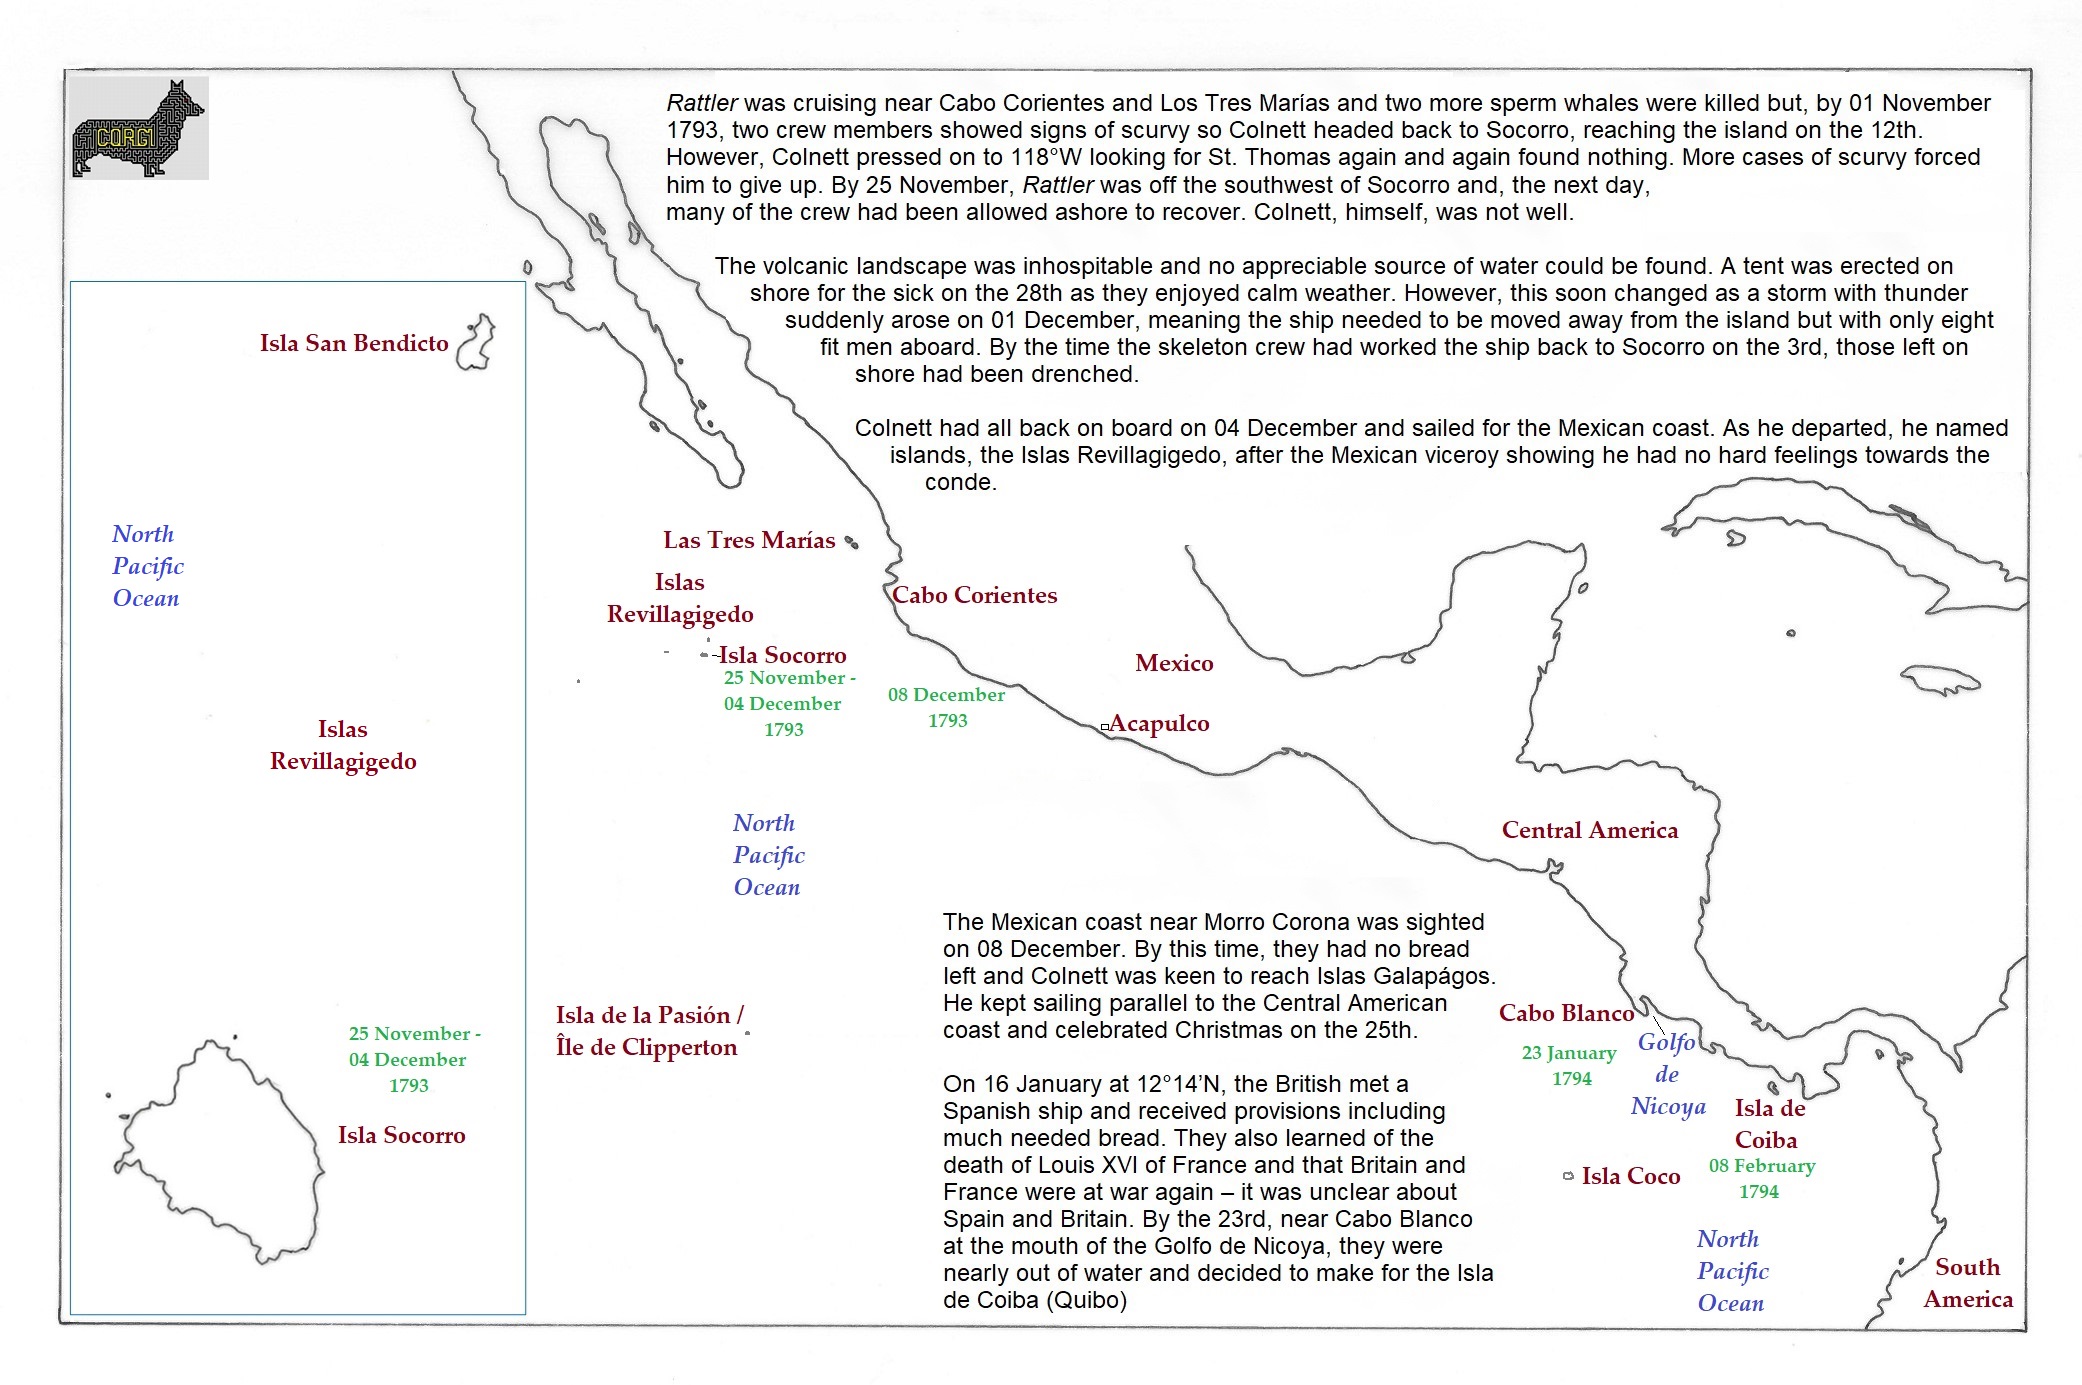 CORGI
Rattler was cruising near Cabo Corientes and Los Tres Marías and two more sperm whales were killed but, by 01 November
1793, two crew members showed signs of scurvy so Colnett headed back to Socorro, reaching the island on the 12th.
However, Colnett pressed on to 118°W looking for St. Thomas again and again found nothing. More cases of scurvy forced
him to give up. By 25 November, Rattler was off the southwest of Socorro and, the next day,
many of the crew had been allowed ashore to recover. Colnett, himself, was not well.
The volcanic landscape was inhospitable and no appreciable source of water could be found. A tent was erected on
shore for the sick on the 28th as they enjoyed calm weather. However, this soon changed as a storm with thunder
suddenly arose on 01 December, meaning the ship needed to be moved away from the island but with only eight
fit men aboard. By the time the skeleton crew had worked the ship back to Socorro on the 3rd, those left on
shore had been drenched.
Colnett had all back on board on 04 December and sailed for the Mexican coast. As he departed, he named
islands, the Islas Revillagigedo, after the Mexican viceroy showing he had no hard feelings towards the
conde.
Isla San Bendicto
North
Pacific
Ocean
Islas
Revillagigedo
25 November -
04 December
1793
Isla Socorro
Las Tres Marías
Islas
Revillagigedo
Isla Socorro
25 November -
04 December
1793
Cabo Corientes
08 December
1793
Mexico
Acapulco
North
Pacific
Ocean
Central America
Isla de la Pasión /
Île de Clipperton
The Mexican coast near Morro Corona was sighted
on 08 December. By this time, they had no bread
left and Colnett was keen to reach Islas Galapágos.
He kept sailing parallel to the Central American
coast and celebrated Christmas on the 25th.
On 16 January at 12°14’N, the British met a
Spanish ship and received provisions including
much needed bread. They also learned of the
death of Louis XVI of France and that Britain and
France were at war again – it was unclear about
Spain and Britain. By the 23rd, near Cabo Blanco
at the mouth of the Golfo de Nicoya, they were
nearly out of water and decided to make for the Isla
de Coiba (Quibo)
Cabo Blanco
23 January
1794
Golfo
de
Nicoya
Isla de
Coiba
08 February
1794
Isla Coco
North
Pacific
Ocean
South
America